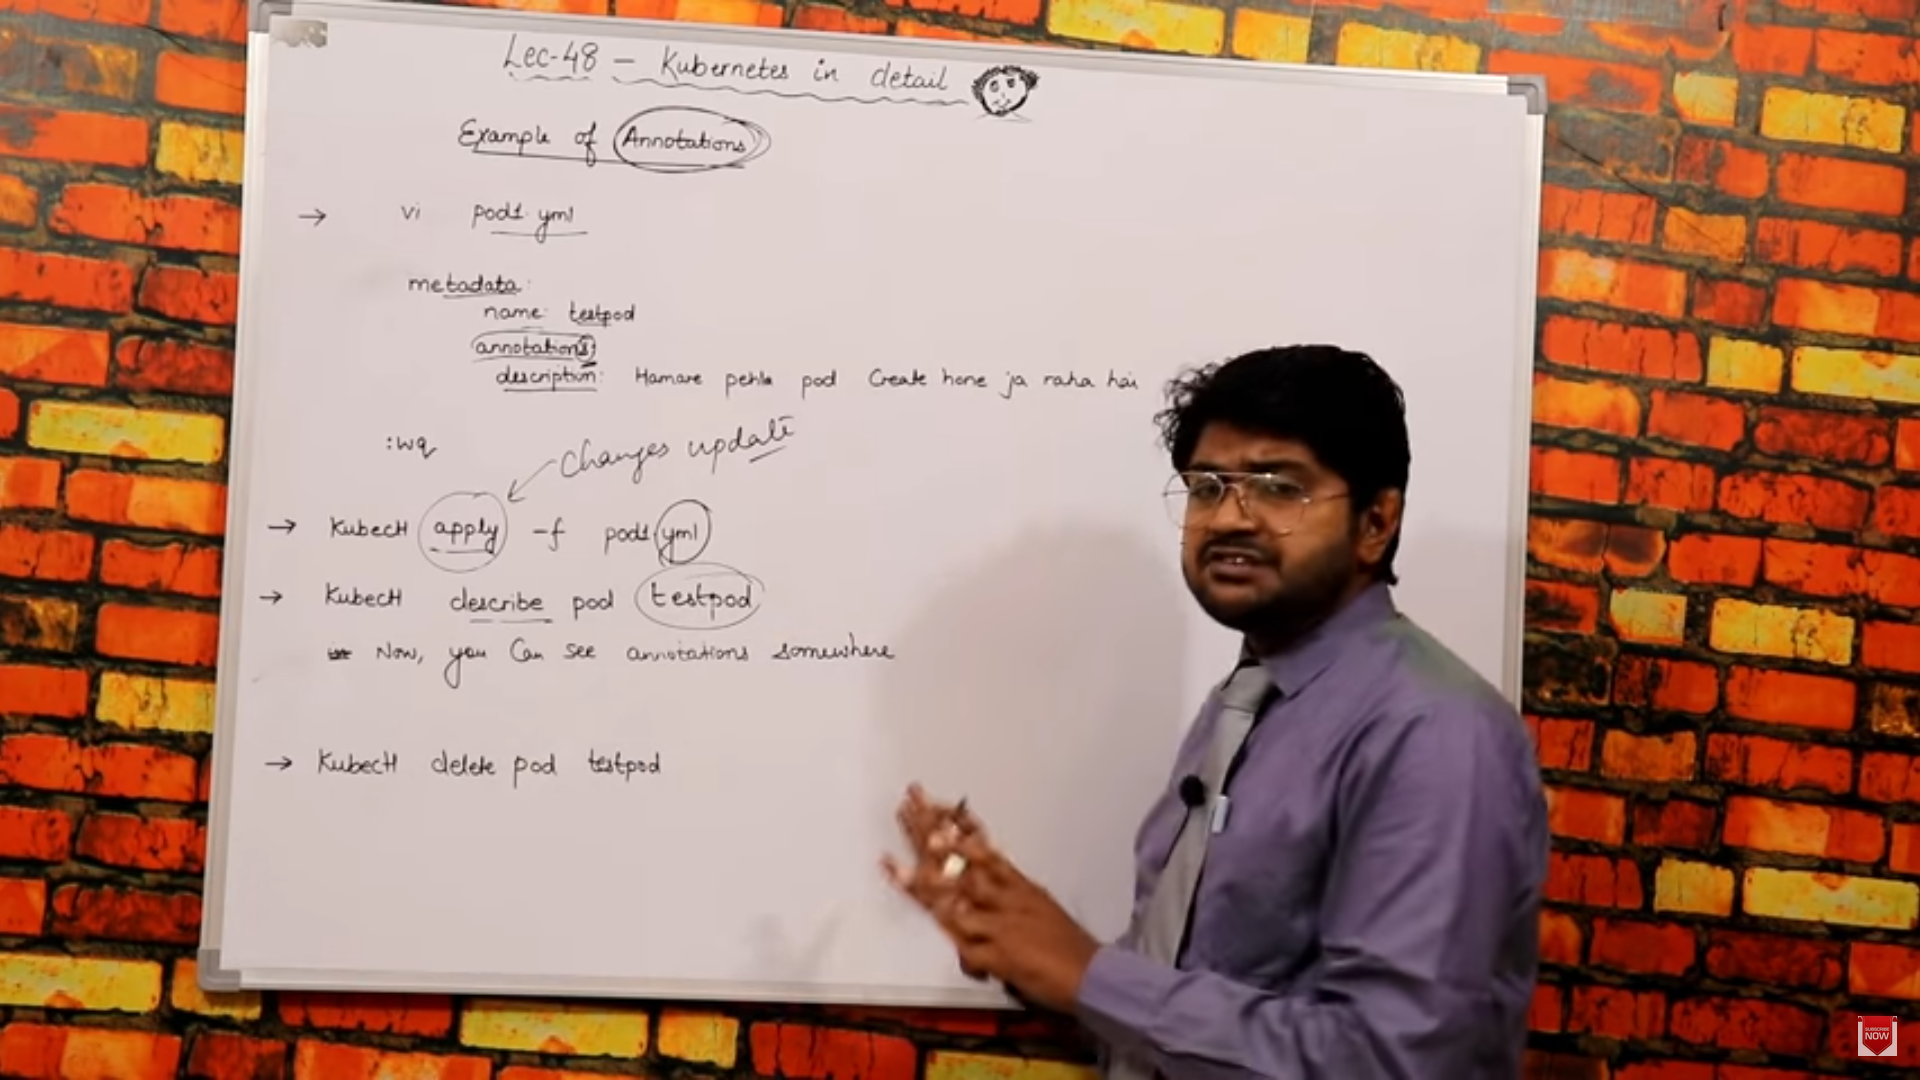 Lec-48 - Kubernetes in detail
Example of Annotations
→ vi pod1.yml
metadata:
name: testpod
annotations:
description: Hamare pehla pod Create hone ja raha hai
:wq
changes update
→ Kubectl apply -f pod1.yml
→ Kubectl describe pod testpod
Now, you Can see annotations somewhere
→ Kubectl delete pod testpod
SUBSCRIBE
NOW